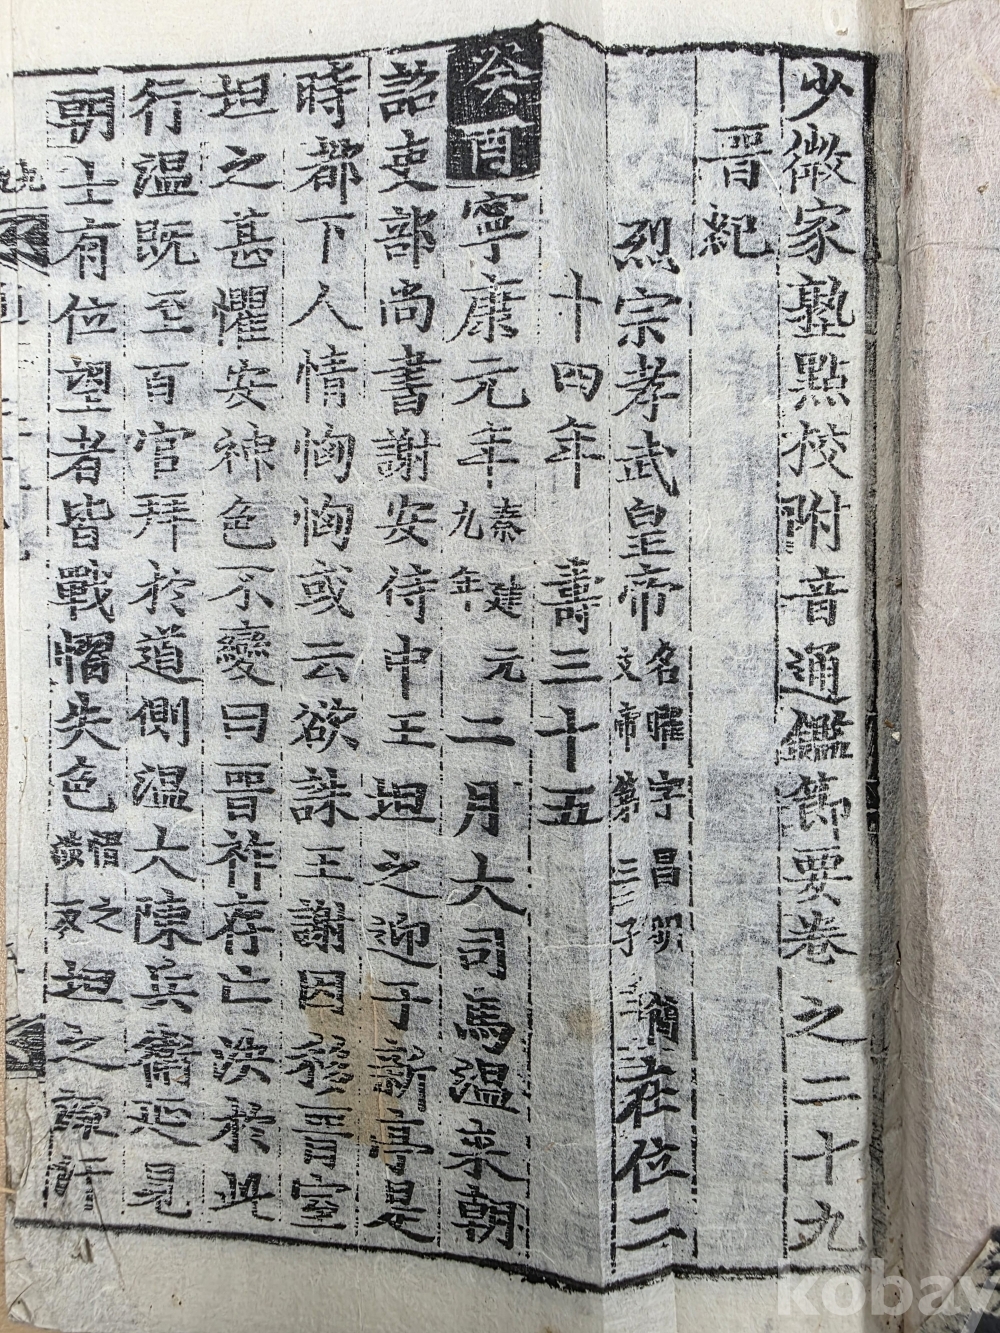 少微家塾點校附音通鑑節要卷之二十九
晉紀
烈宗孝武皇帝名曜字昌明簡文帝第三子在位二
十四年 壽三十五
癸酉寧康元年秦建元九年二月大司馬溫來朝
詔吏部尚書謝安侍中王坦之迎于新亭是
時都下人情恟恟或云欲誅王謝因移晉室
坦之甚懼安神色不變曰晉祚存亡決於此
行溫既至百官拜於道側溫大陳兵衛延見
朝士有位望者皆戰慴失色慴之涉反坦之流汗
kobay